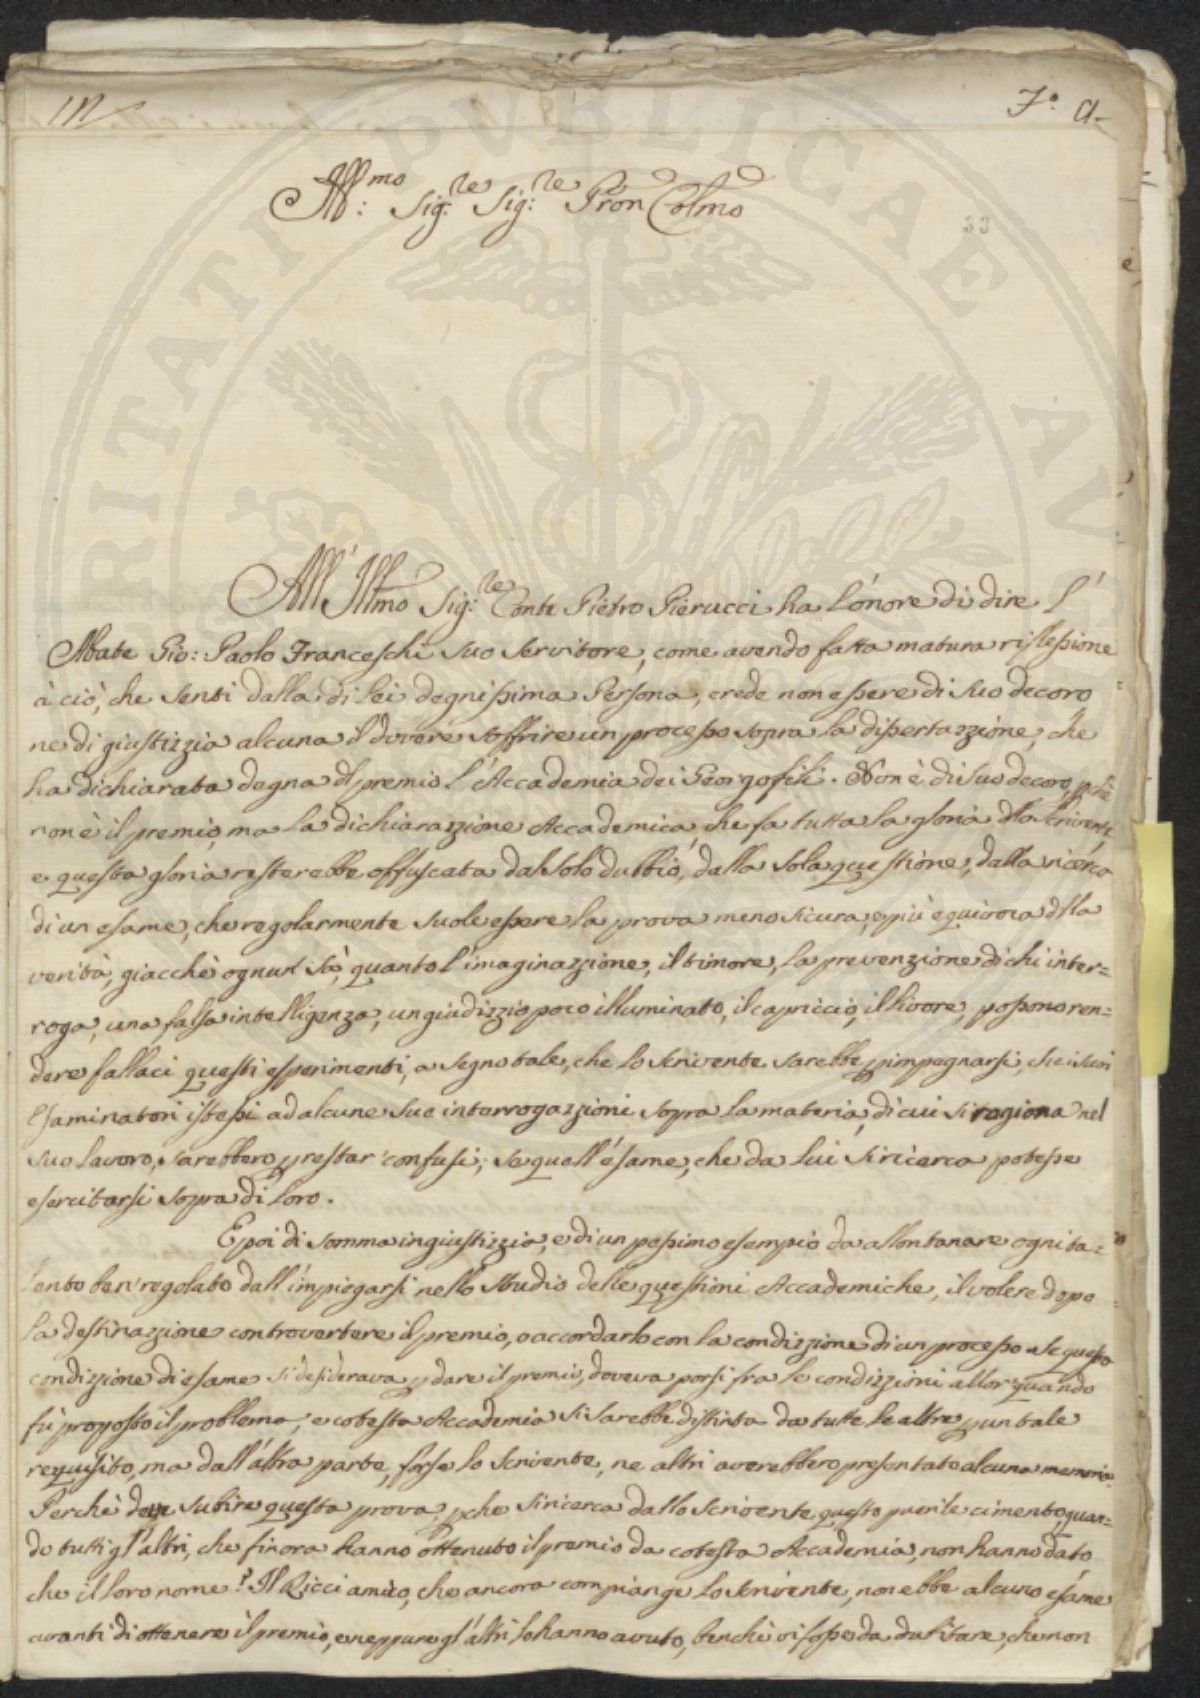 F.° a.
Ill:mo Sig:re Sig:re Pron Colmo
33
All' Illmo Sig:re Conte Pietro Pierucci ha l'onore di dire l'
Abate Gio: Paolo Franceschi suo servitore, come avendo fatta matura riflessione
à ciò, che sentì dalla di Lei degnissima Persona, crede non essere di suo decoro
ne di giustizzia alcuna il dovere soffrire un processo sopra la dissertazzione, che
ha dichiarata degna del premio l'Accademia dei Georgofili. Non è di suo decoro, pchè
non è il premio, ma la dichiarazzione Accademica, che fa tutta la gloria dllo scrivente,
e questa gloria resterebbe offuscata dal solo dubbio, dalla sola questione, dalla ricerca
di un esame, che regolarmente suole essere la prova meno sicura, e più equivoca dlla
verità, giacchè ognun sà, quanto l'imaginazzione, il timore, la prevenzione di chi inter=
roga, una falsa intelligenza, un giudizzio poco illuminato, il capriccio, il livore, possono ren=
dere fallaci questi esperimenti, a segno tale, che lo scrivente sarebbe p impegnarsi, che i suoi
esaminatori istessi ad alcune sue interrogazzioni sopra la materia, di cui si ragiona nel
suo lavoro, sarebbero p restar confusi, se quell'esame, che da lui si ricerca potesse
esercitarsi sopra di loro.
E poi di somma ingiustizzia, e di un pessimo esempio da allontanare ogni ta=
lento ben regolato dall'impiegarsi nello studio delle questioni Accademiche, il volere dopo
la destinazzione controvertere il premio, o accordarlo con la condizzione di un processo. Se questa
condizione di esame si desiderava p dare il premio, doveva porsi fra le condizzioni allor quando
fù proposto il problema, e cotesta Accademia si sarebbe distinta da tutte le altre p un tale
requisito, ma dall'altra parte, forse lo scrivente, ne altri averebbero presentato alcuna memoria.
Perchè deve subire questa prova, pche si ricerca dallo scrivente questo puerile cimento, quan=
do tutti gl'altri, che finora hanno ottenuto il premio da cotesta Accademia, non hanno dato
che il loro nome? Il Ricci amico, che ancora compiange lo scrivente, non ebbe alcuno esame
avanti di ottenere il premio, e neppure gl'altri lo hanno avuto, benchè vi fosse da dubitare, che non